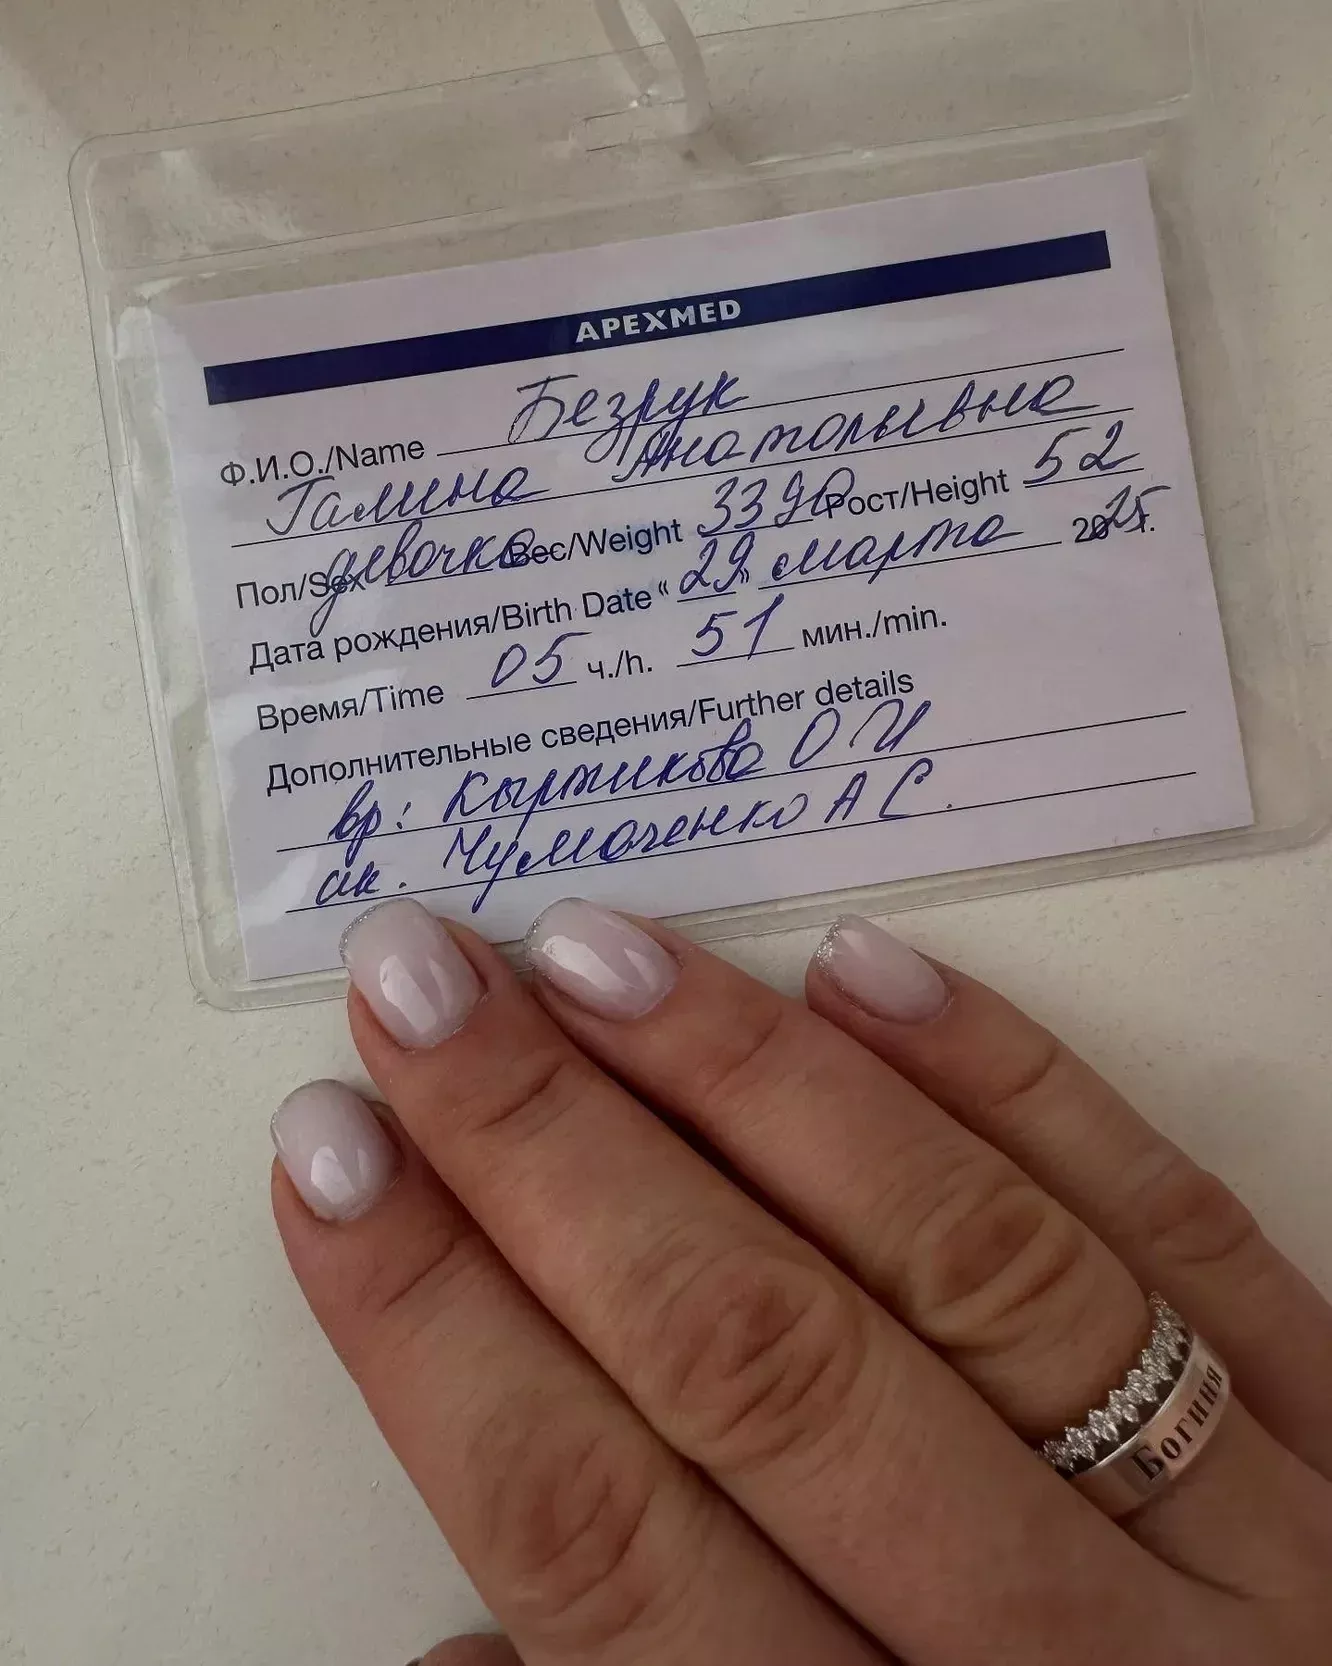 APEXMED
Ф.И.О./Name Безрук
Галина Анатольевна
Пол/Sex девочка Вес/Weight 3390 Рост/Height 52
Дата рождения/Birth Date “29” марта 2025г.
Время/Time 05 ч./h. 51 мин./min.
Дополнительные сведения/Further details
вр: О И
ак. Чумаченко А С.
Богиня